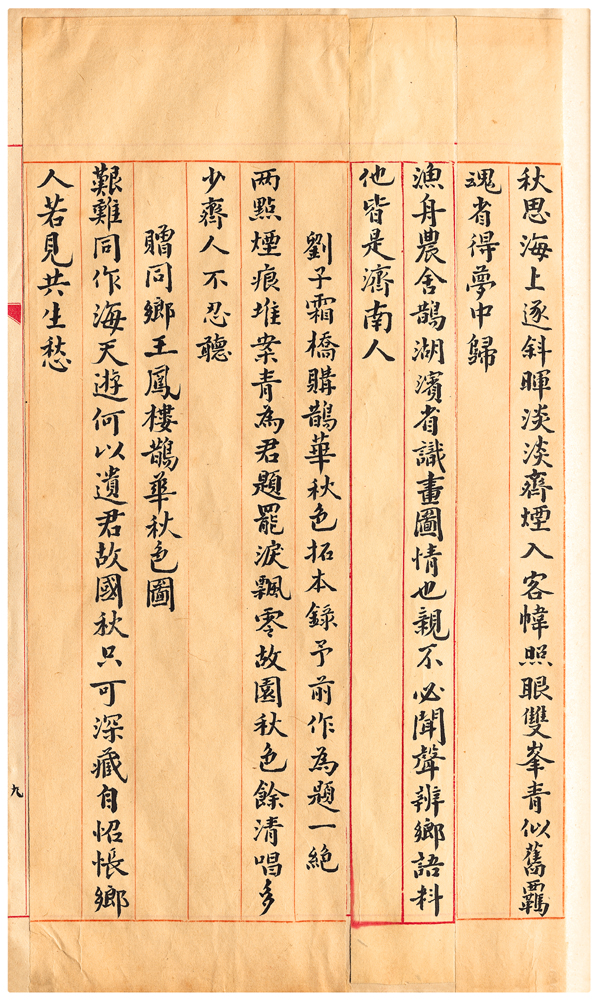 秋思海上逐斜暉淡淡齊煙入客幃照眼雙峯青似舊羈
魂省得夢中歸
漁舟農舍鵲湖濱省識畫圖情也親不必聞聲辨鄉語料
他皆是濟南人
劉子霜橋購鵲華秋色拓本錄予前作為題一絶
兩點煙痕堆案青為君題罷淚飄零故園秋色餘清唱多
少齊人不忍聽
贈同鄉王鳳樓鵲華秋色圖
艱難同作海天遊何以遺君故國秋只可深藏自怊悵鄉
人若見共生愁
九